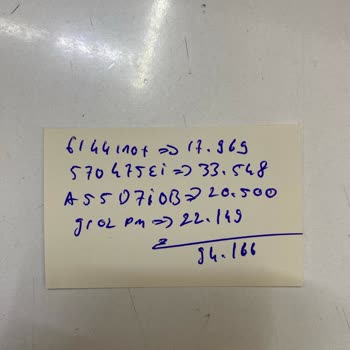 6144110t => 17.969
570475Ei => 33.548
A55D7i0B => 20.500
g102 pm => 22.149
94.166